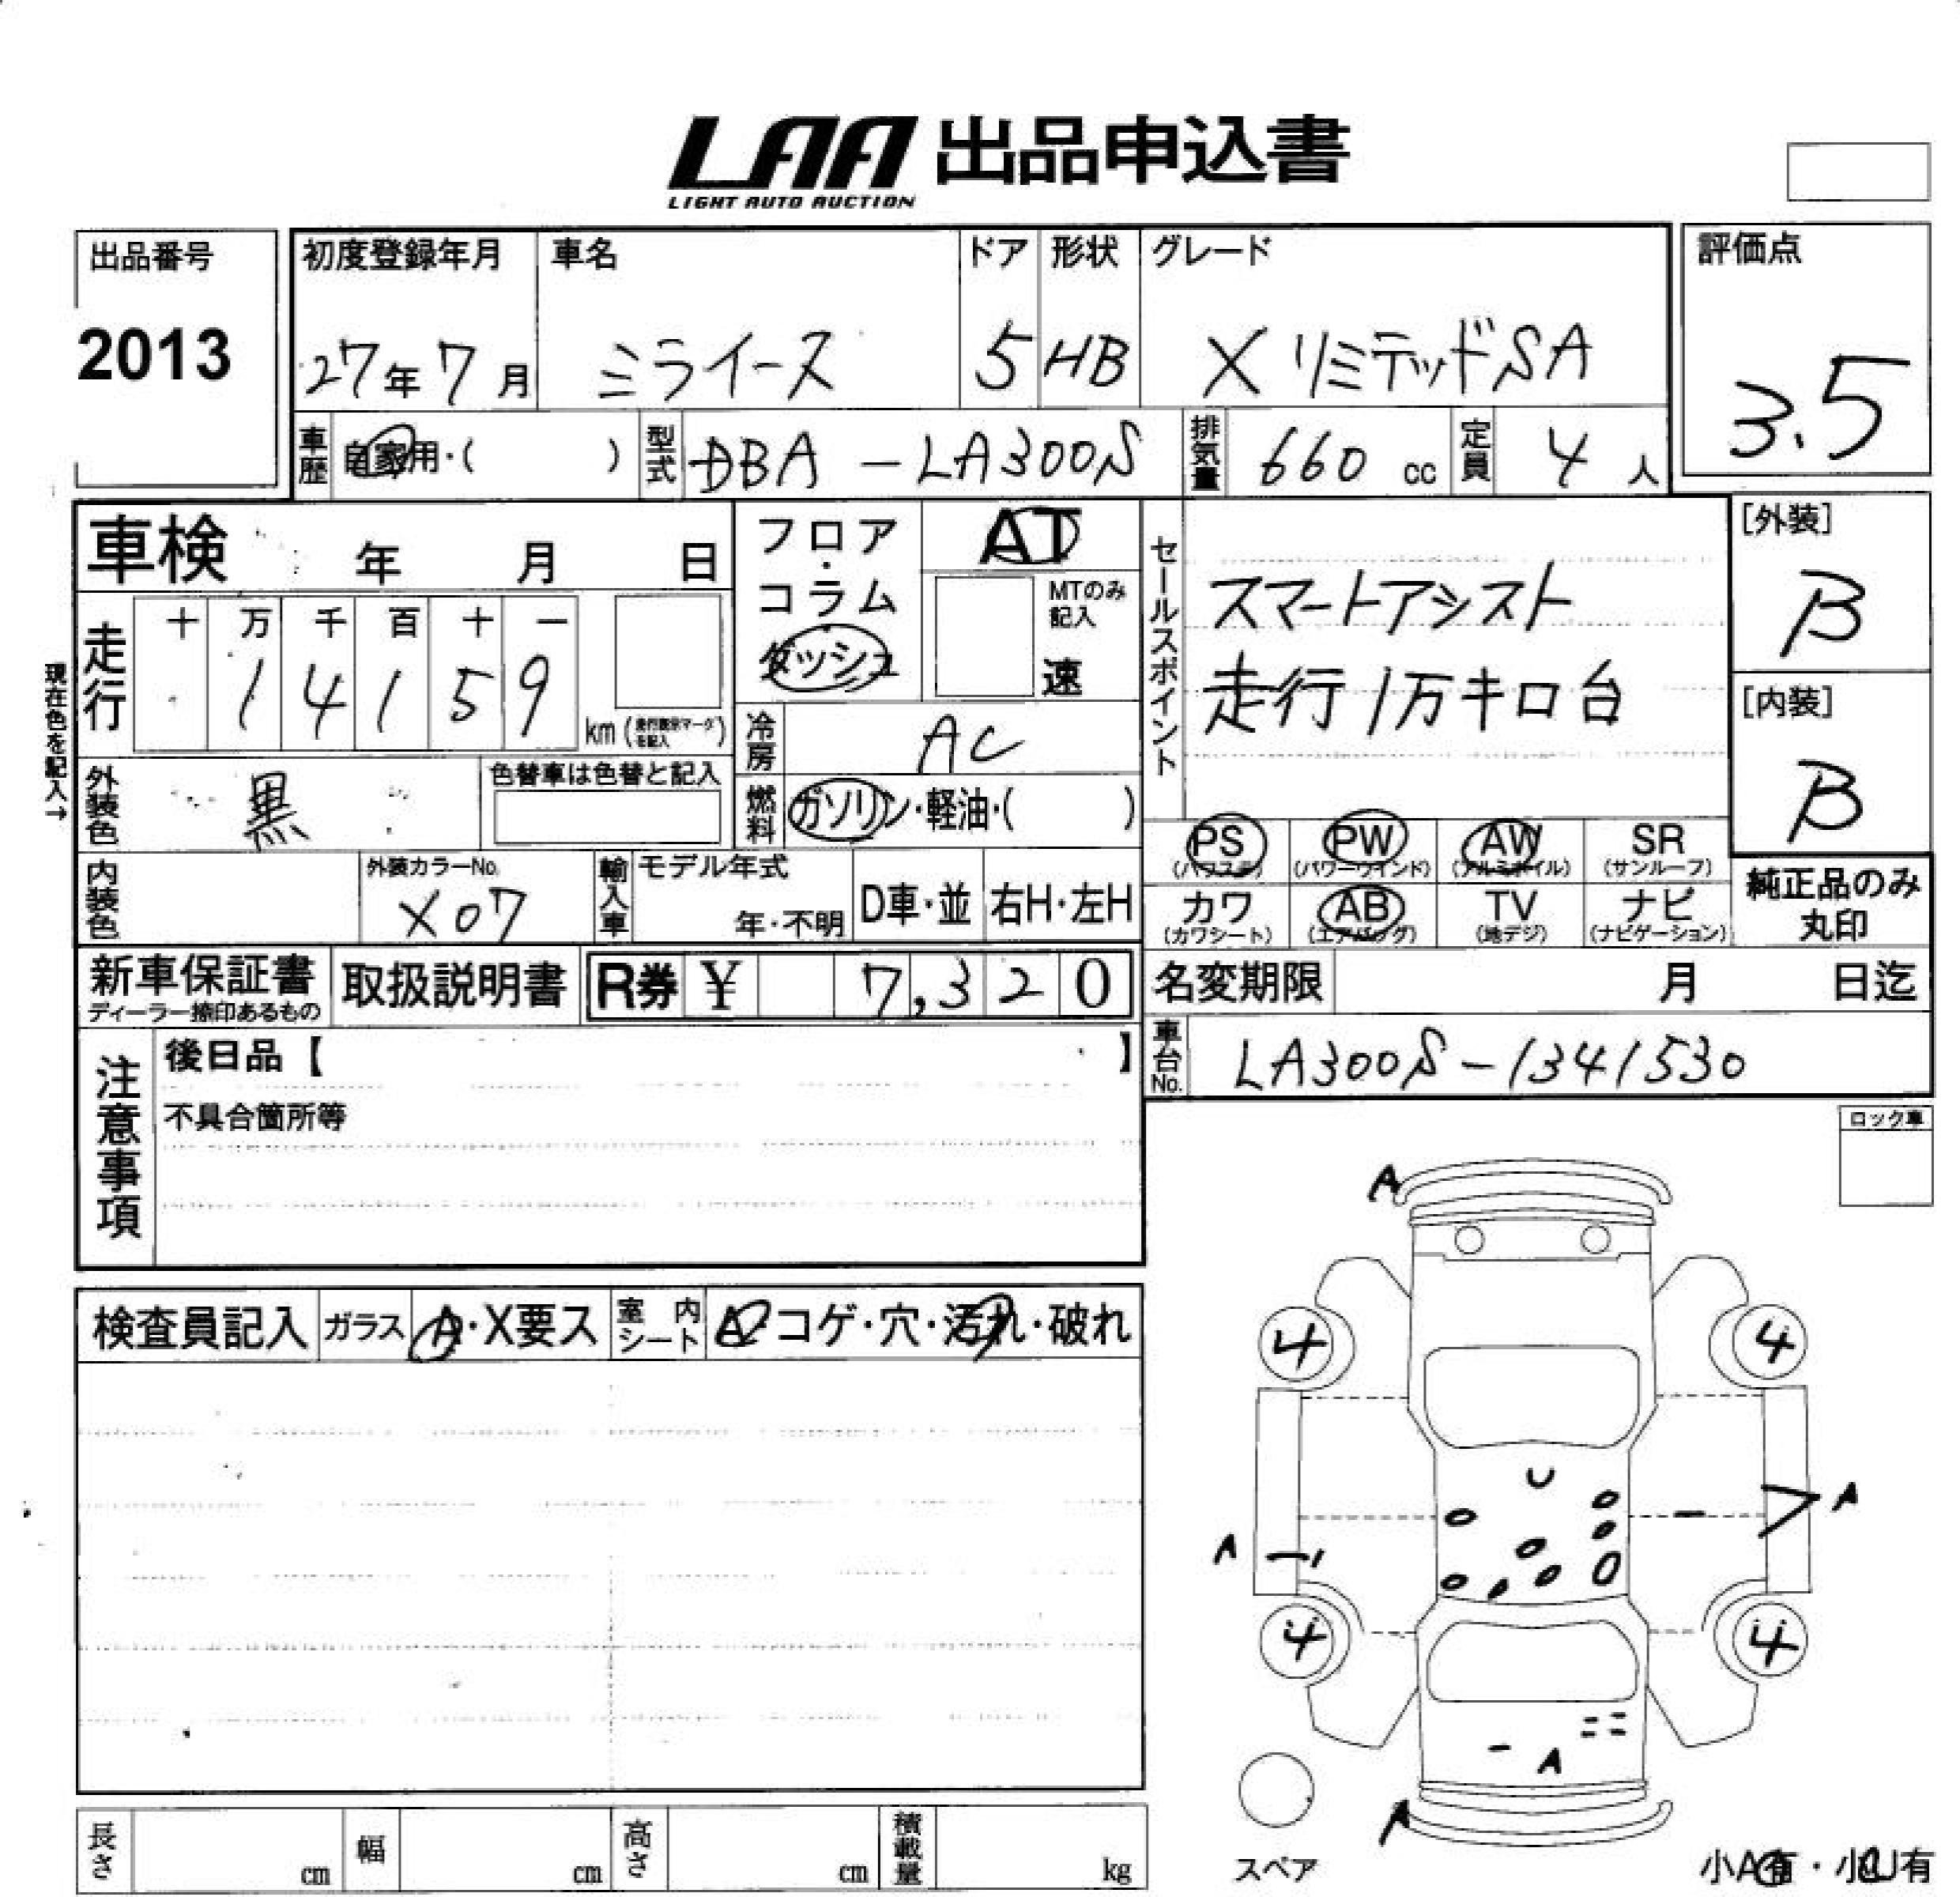 LAA 出品申込書
LIGHT AUTO AUCTION
出品番号
2013
初度登録年月 車名 ドア 形状 グレード
27年7月 ミライース 5 HB XリミテッドSA
評価点
3.5
車歴 自家用・( ) 型式 DBA-LA300S 排気量 660 cc 定員 4人
車検 年 月 日
フロア・
コラム・
ダッシュ
AT
MTのみ
記入
速
走行 十 万 千 百 十 一
1 4 1 5 9
km(走行表示マークを記入)
現在色を記入→
冷房 AC
セールスポイント
スマートアシスト
走行1万キロ台
[外装]
B
[内装]
B
外装色 黒 色替車は色替と記入
燃料 ガソリン・軽油・( )
PS PW AW SR
(パワステ) (パワーウインド) (アルミホイル) (サンルーフ)
カワ AB TV ナビ
(カワシート) (エアバッグ) (地デジ) (ナビゲーション)
純正品のみ
丸印
内装色 外装カラーNo. X07
輸入車 モデル年式 年・不明 D車・並 右H・左H
新車保証書
ディーラー捺印あるもの
取扱説明書 R券 ¥ 7,320
名変期限 月 日迄
車台No. LA300S-1341530
注意事項
後日品【 】
不具合箇所等
ロック車
検査員記入 ガラス A・X要ス 室内シート A・コゲ・穴・汚れ・破れ
A
4 4
U
A
A
4 4
A
A
スペア
小A有・小U有
長さ cm 幅 cm 高さ cm 積載量 kg